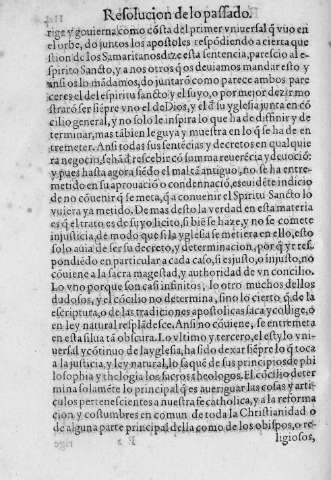 Resolucion de lo passado.
rige y gouierna como cõsta del primer vniuersal q̃ vuo en
el orbe, do juntos los apostoles respõdiendo a cierta que
stion de los Samaritanos dize esta sentencia, parescio al e-
spirito Sancto, y a nos otros q̃ deuiamos mandar esto y
ansi os lo mãdamos, do juntarõ como parece ambos pare
ceres el del espiritu sancto y el suyo, o por mejor dezir mo
straro ser siẽpre vno el de Dios, y el d̃ su yglesia junta en cõ
cilio general, y no solo le inspira lo que ha de diffinir y de
terminar, mas tãbien le guya y muestra en lo q̃ se ha de en
tremeter. Ansi todas sus sentẽcias y decretos en qualquie
ra negocio, se hã d̃ rescebir cõ summa reuerẽcia y deuociõ:
y pues hasta agora siẽdo el mal tã antiguo, no se ha entre-
metido en su aprouaciõ o condennaciõ, es euidẽte indicio
de no cõuenir q̃ se meta, q̃ a conuenir el Spiritu Sancto lo
vuiera ya metido. De mas desto la verdad en esta materia
es q̃ el trato es de suyo licito, si biẽ se haze, y no se comete
injusticia, de modo que si la yglesia se metiera en ello, esto
solo auia de ser su decreto, y determinacion, por q̃ yr res-
pondiẽdo en particular a cada caso, si es justo, o injusto, no
cõuiene a la sacra magestad, y authoridad de vn concilio.
Lo vno porque son casi infinitos, lo otro muchos dellos
dudosos, y el cõcilio no determina, sino lo cierto q̃ de la
escriptura, o de las tradiciones apostolicas saca y collige, o
en ley natural resplãdesce. Ansi no cõuiene, se entremeta
en esta silua tã obscura. Lo vltimo y tercero, el estylo vni-
uersal y cõtinuo de la yglesia, ha sido dexar siẽpre lo q̃ toca
a la justicia, y ley natural, lo saquẽ de sus principios de phi
losophia y theologia los sacros theologos. El cõcilio deter
mina solamẽte lo principal q̃ es aueriguar las cosas y arti-
culos pertenescientes a nuestra fe catholica, y a la reforma
cion y costumbres en comun de toda la Christianidad o
de alguna parte principal della como de los obispos, o re-
ligiosos,